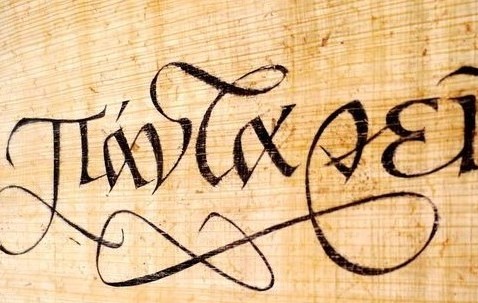 Πάντα ρεῖ